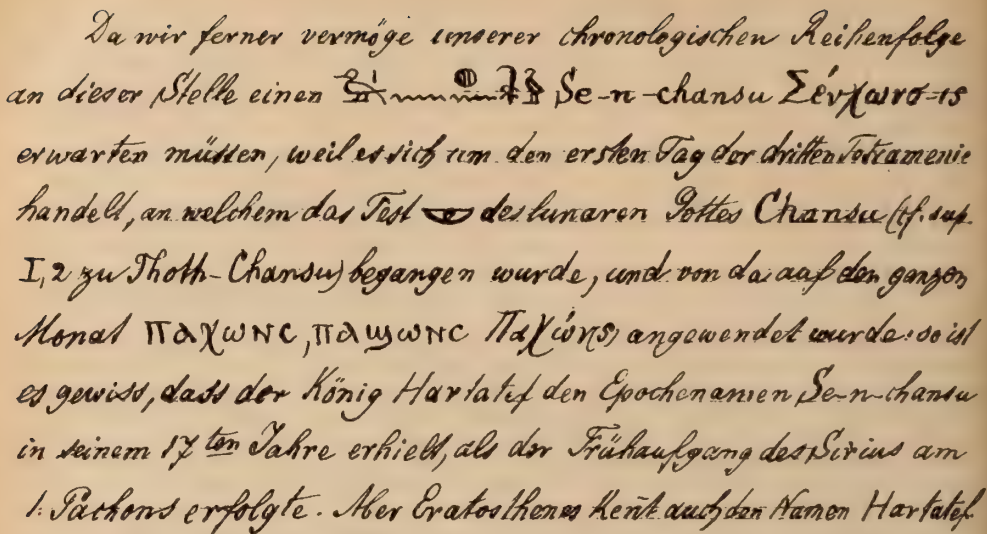 Da wir ferner vermöge unserer chronologischen Reihenfolge
an dieser Stelle einen Se-n-chansu Σένχωνσ-ις
erwarten müssen, weil es sich um den ersten Tag der dritten Tetramenie
handelt, an welchem das Fest des lunaren Gottes Chansu (cf. sup.
I, 2 zu Thoth-Chansu) begangen wurde, und von da auf den ganzen
Monat ⲡⲁⲭⲱⲛⲥ, ⲡⲁϣⲱⲛⲥ Παχώνς) angewendet wurde: so ist
es gewiss, dass der König Hartatef den Epochenamen Se-n-chansu
in seinem 17ten Jahre erhielt, als der Frühaufgang des Sirius am
1. Pachons erfolgte. Aber Eratosthenes kent̄ auch den Namen Hartatef